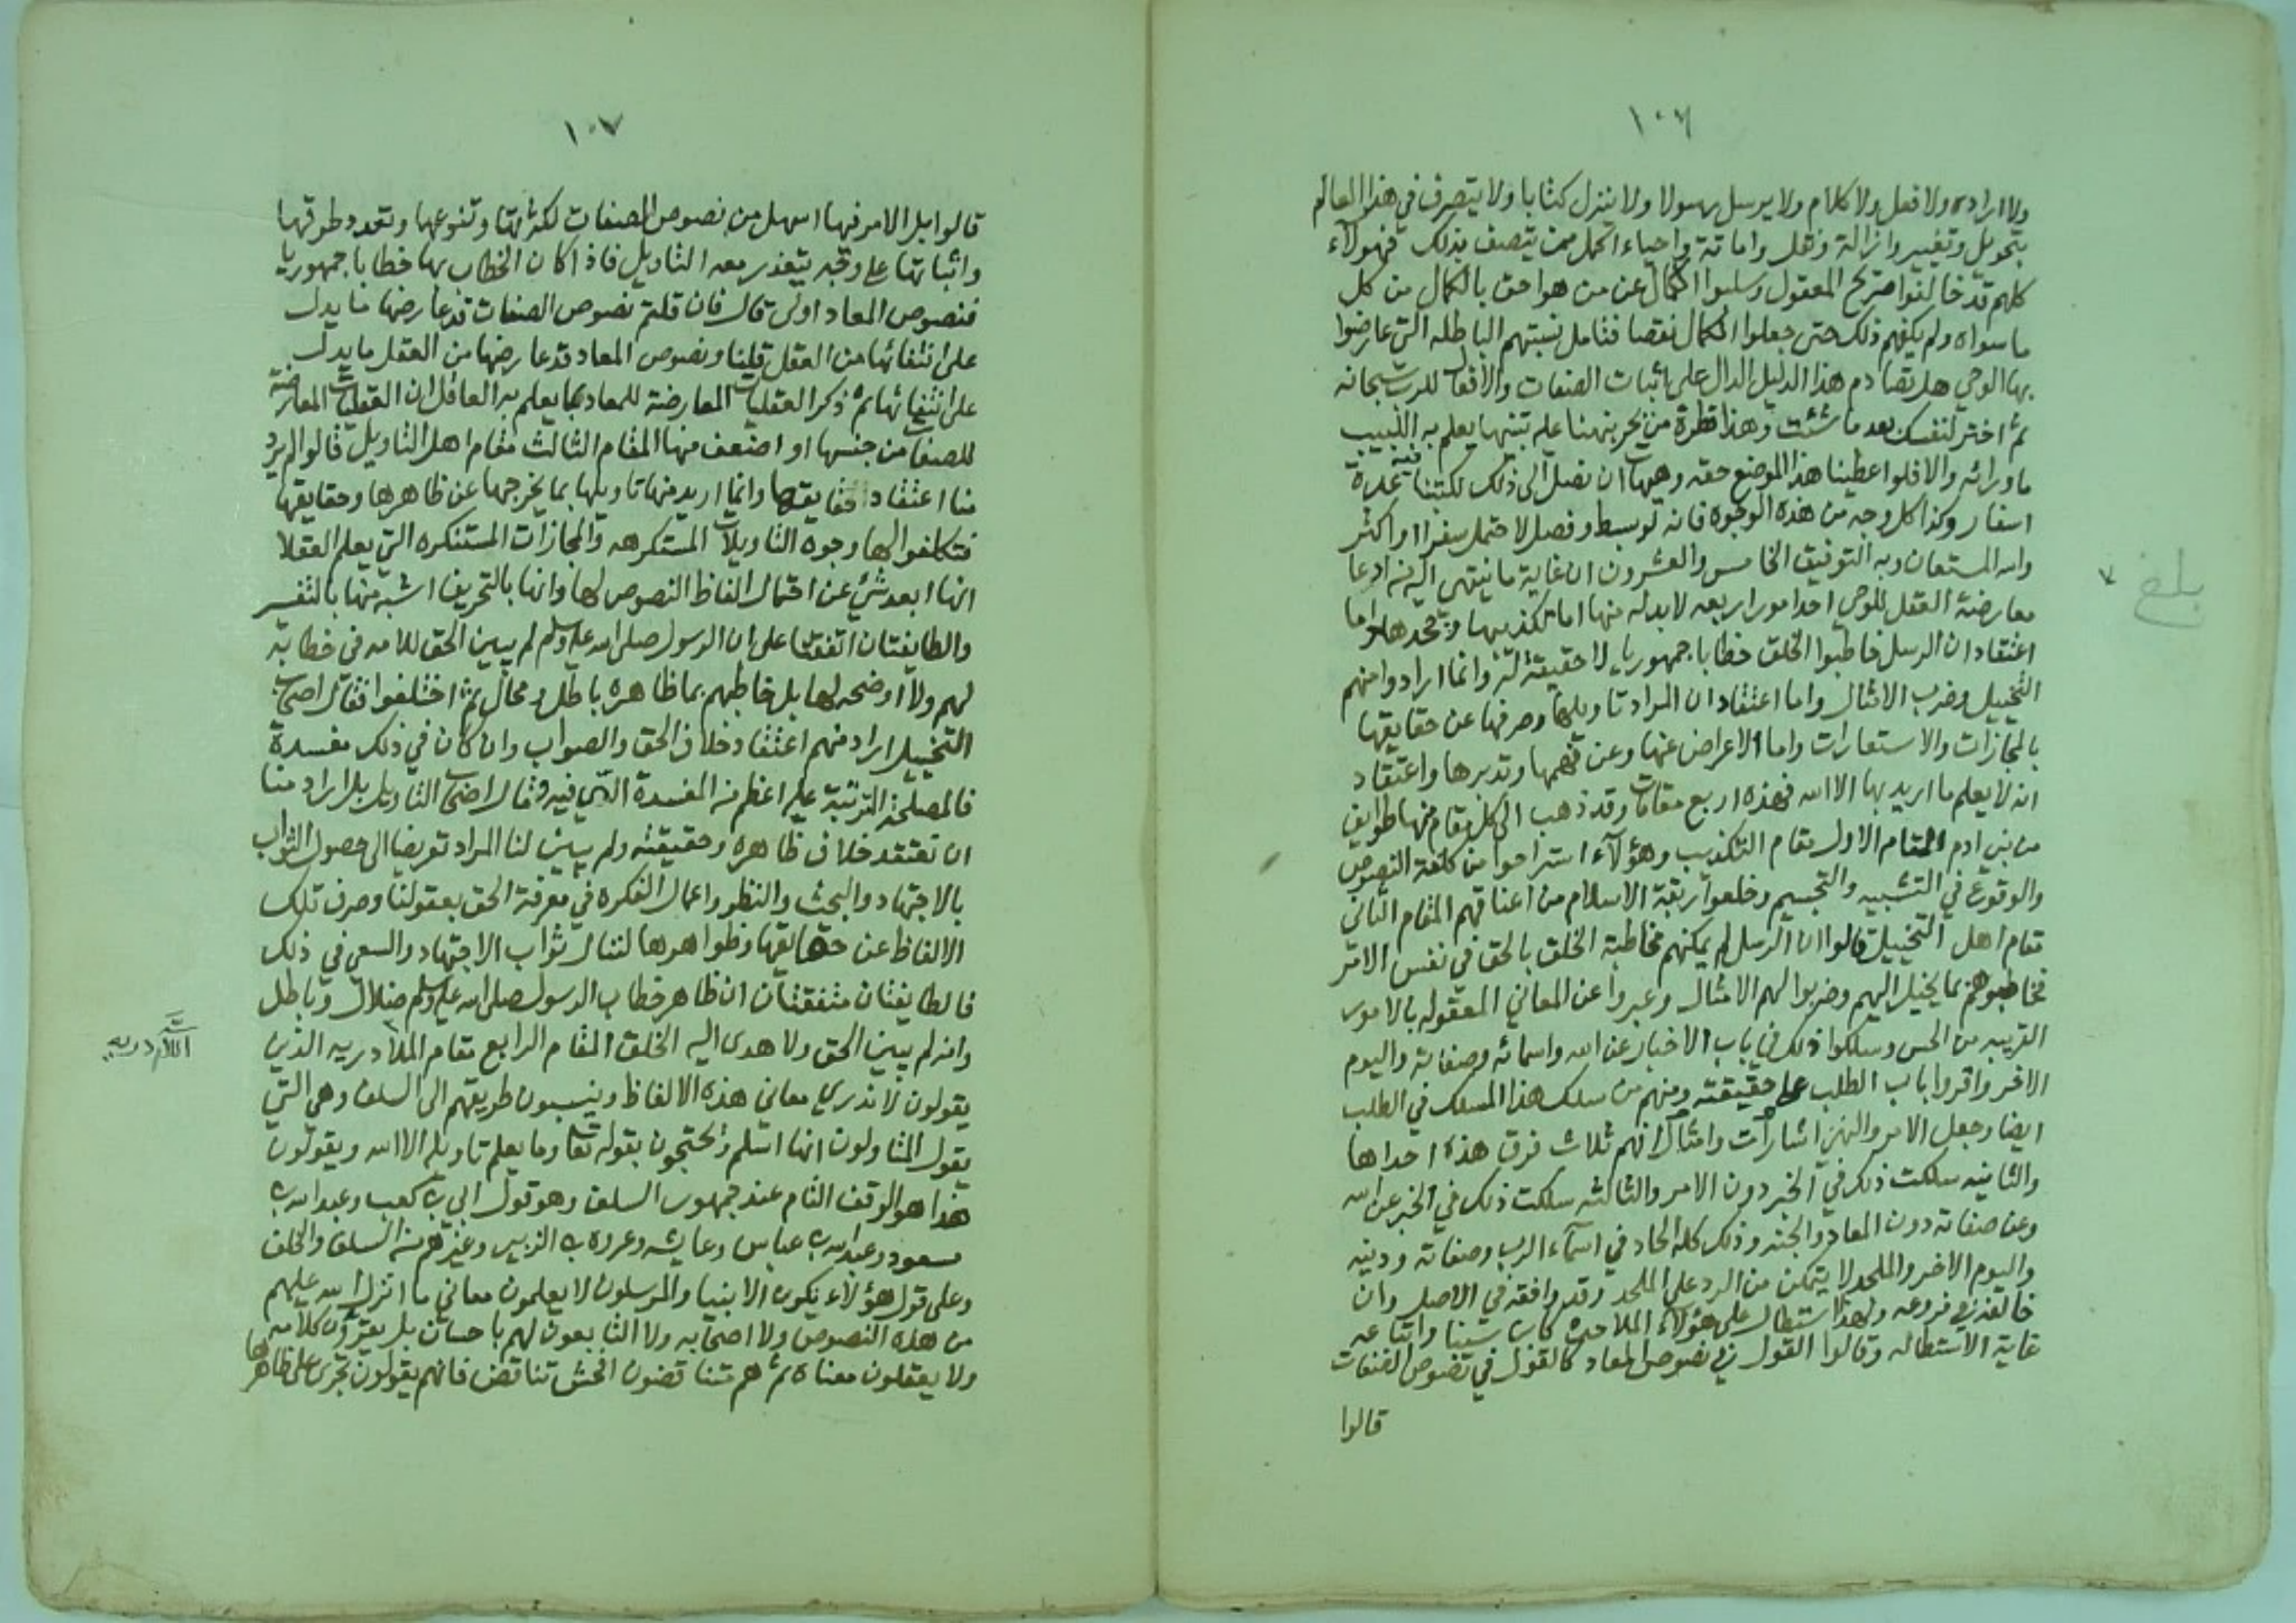 ١٠٦
ولا ارادة ولا فعل ولا كلام ولا يرسل رسولا ولا ينزل كتابا ولا يتصرف في هذا العالم
بتحويل وتغيير وازالة ونقل واماتة واحياء اكمل ممن يتصف بذلك فهولاء
كلهم قد خالفوا صريح المعقول وسلبوا الكمال عن من هو احق بالكمال من كل
ما سواه ولم يكفهم ذلك حتى جعلوا الكمال نقصا فتامل شبهتهم الباطله التي عارضوا
بها الوحي هل تصادم هذا الدليل الدال على اثبات الصفات والافعال للرب سبحانه
ثم اختر لنفسك بعد ما شئت وهذا قطرة من بحر نبهنا عليه تنبيها يعلم به اللبيب
ما وراءه والا فلو اعطينا هذا الموضع حقه وهيهات ان نصل الى ذلك لكتبنا فيه عدة
اسفار وكذا كل وجه من هذه الوجوه فانه لو بسط وفصل لاحتمل سفرا او اكثر
والله المستعان وبه التوفيق الخامس والعشرون ان غاية ما ينتهي اليه من ادعا
معارضة العقل للوحي احد امور اربعه لا بد له منها اما تكذيبها وجحدها واما
اعتقاد ان الرسل خاطبوا الخلق خطابا جمهوريا لا حقيقة له وانما ارادوا منهم
التخييل وضرب الامثال واما اعتقاد ان المراد تاويلها وصرفها عن حقايقها
بالمجازات والاستعارات واما الاعراض عنها وعن فهمها وتدبرها واعتقاد
انه لا يعلم ما اريد بها الا الله فهذه اربع مقامات وقد ذهب الى كل مقام منها طوايف
من بني ادم المقام الاول مقام التكذيب وهؤلاء استراحوا من كلفة النصوص
والوقوع في التشبيه والتجسيم وخلعوا ربقة الاسلام من اعناقهم المقام الثاني
مقام اهل التخييل قالوا ان الرسل لم يمكنهم مخاطبة الخلق بالحق في نفس الامر
فخاطبوهم بما يخيل اليهم وضربوا لهم الامثال وعبروا عن المعاني المعقوله بالامور
القريبه من الحس وسلكوا ذلك في باب الاخبار عن الله واسمائه وصفاته واليوم
الاخر واقروا باب الطلب على حقيقته ومنهم من سلك هذا المسلك في الطلب
ايضا وجعل الامر والنهي اشارات وامثال فهم ثلاث فرق هذه احداها
والثانيه سلكت ذلك في الخبر دون الامر والثالثه سلكت ذلك في الخبر عن الله
وعن صفاته دون المعاد والجنه وذلك كله الحاد في اسماء الرب وصفاته ودينه
واليوم الاخر والملحد لا يتمكن من الرد على الملحد وقد وافقه في الاصل وان
خالفه في فروعه ولهذا استطال على هؤلاء الملاحدة كابن سينا واتباعه
غاية الاستطاله وقالوا القول في نصوص المعاد كالقول في نصوص الصفات
قالوا
بلغ
١٠٧
قالوا بل الامر فيها اسهل من نصوص الصفات لكثرتها وتنوعها وتعدد طرقها
واثباتها على وجه يتعذر معه التاويل فاذا كان الخطاب بها خطابا جمهوريا
فنصوص المعاد اولى قال فان قلتم نصوص الصفات قد عارضها ما يدل
على انتفائها من العقل قلنا ونصوص المعاد قد عارضها من العقل ما يدل
على انتفائها ثم ذكر العقليات المعارضة للمعاد بما يعلم به العاقل ان العقليات المعارضة
للصفات من جنسها او اضعف منها المقام الثالث مقام اهل التاويل قالوا لم يرد
منا اعتقاد حقايقها وانما اريد منها تاويلها بما يخرجها عن ظاهرها وحقايقها
فتكلفوا لها وجوه التاويلات المستكرهه والمجازات المستنكره التي يعلم العقلا
انها ابعد شي عن احتمال الفاظ النصوص لها وانها بالتحريف اشبه منها بالتفسير
والطايفتان اتفقتا على ان الرسول صلى الله عليه وسلم لم يبين الحق للامه في خطابه
لهم ولا اوضحه لها بل خاطبهم بما ظاهره باطل ومحال ثم اختلفوا فقال اصحاب
التخييل اراد منهم اعتقاد خلاف الحق والصواب وان كان في ذلك مفسدة
فالمصلحة المترتبة عليه اعظم من المفسدة التي فيه وقال اصحاب التاويل بل اراد منا
ان نعتقد خلاف ظاهره وحقيقته ولم يبين لنا المراد تعريضا الى حصول الثواب
بالاجتهاد والبحث والنظر واعمال الفكرة في معرفة الحق بعقولنا وصرف تلك
الالفاظ عن حقايقها وظواهرها لننال ثواب الاجتهاد والسعي في ذلك
فالطايفتان متفقتان ان ظاهر خطاب الرسول صلى الله عليه وسلم ضلال وباطل
وانه لم يبين الحق ولا هدى اليه الخلق المقام الرابع مقام اللاادريه الذين
يقولون لا ندري معاني هذه الالفاظ وينسبون طريقهم الى السلف وهي التي
يقول المتاولون انها اسلم ويحتجون بقوله تعا وما يعلم تاويله الا الله ويقولون
هذا هو الوقف التام عند جمهور السلف وهو قول ابي بن كعب وعبد الله بن
مسعود وعبد الله بن عباس وعايشه وعروه بن الزبير وغيرهم من السلف والخلف
وعلى قول هؤلاء يكون الانبيا والمرسلون لا يعلمون معاني ما انزل الله عليهم
من هذه النصوص ولا اصحابه ولا التابعون لهم باحسان بل يقرؤن كلامه
ولا يعقلون معناه ثم هم متناقضون افحش تناقض فانهم يقولون تجرى على ظاهرها
اللاادريه